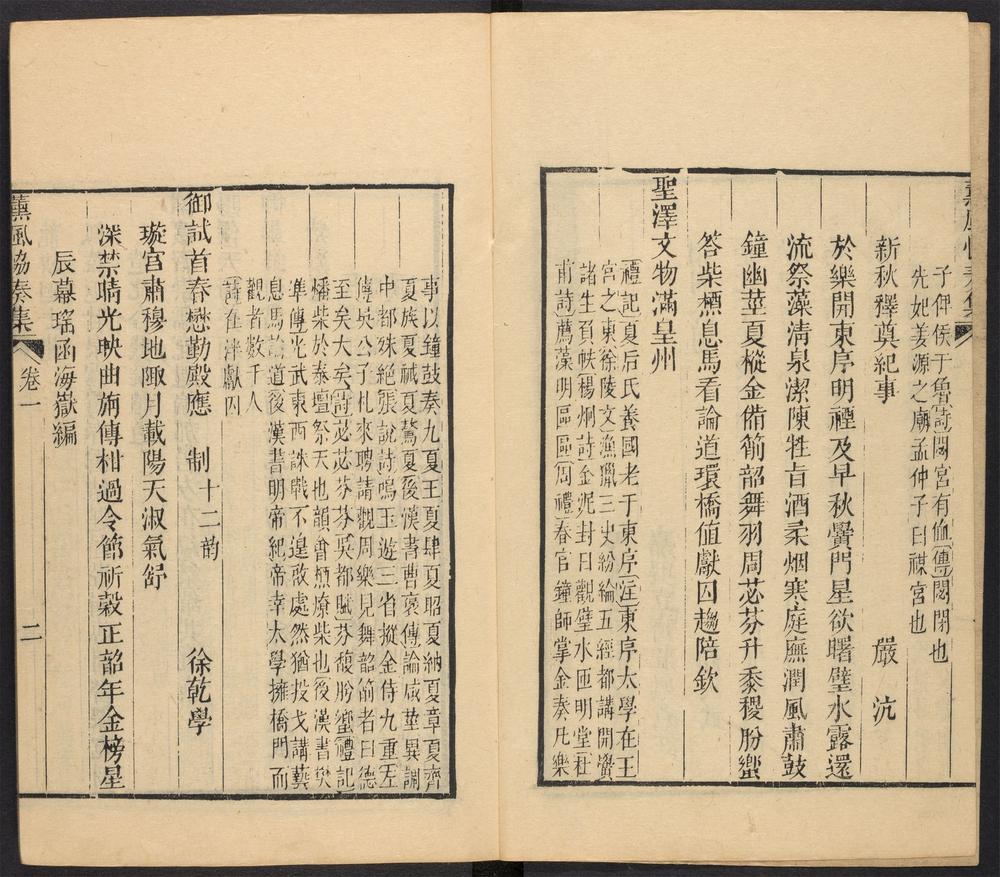 子俾侯于魯詩閟宮有侐傳閟閉也
先妣姜源之廟孟仲子曰禖宮也
新秋釋奠紀事
嚴沆
於樂開東序明禋及早秋黌門星欲曙璧水露還
流祭藻淸泉潔陳牲旨酒柔烟寒庭廡潤風肅鼓
鐘幽莖夏樅金備箾韶舞羽周苾芬升黍稷肦蠁
答柴槱息馬看論道環橋値獻囚趨陪欽
聖澤文物滿皇州
禮記夏后氏養國老于東序注東序太學在王
宮之東徐陵文漁獵三史紛綸五經都講開黌
諸生負帙楊炯詩金泥封日觀璧水匝明堂杜
甫詩薦藻明區區周禮春官鐘師掌金奏凡樂
事以鐘鼓奏九夏王夏肆夏昭夏納夏章夏齊
夏族夏祴夏驁夏後漢書曹褒傳論咸莖異調
中都殊絕張說詩鳴玉遊三省摐金侍九重左
傳吳公子札來聘請觀周樂見舞韶箾者曰德
至矣大矣詩苾苾芬芬吳都賦芬馥肦蠁禮記
燔柴於泰壇祭天也韻會槱燎柴也後漢書樊
準傳光武東西誅戰不遑啟處然猶投戈講藝
息馬論道後漢書明帝紀帝幸太學擁橋門而
觀者數千人
詩在泮獻囚
御試首春懋勤殿應　制十二韵
徐乾學
璇宮肅穆地陬月載陽天淑氣舒
深禁晴光映曲旃傳柑過令節祈穀正韶年金榜星
辰幕瑤函海嶽編
薰風協奏集
卷一
二